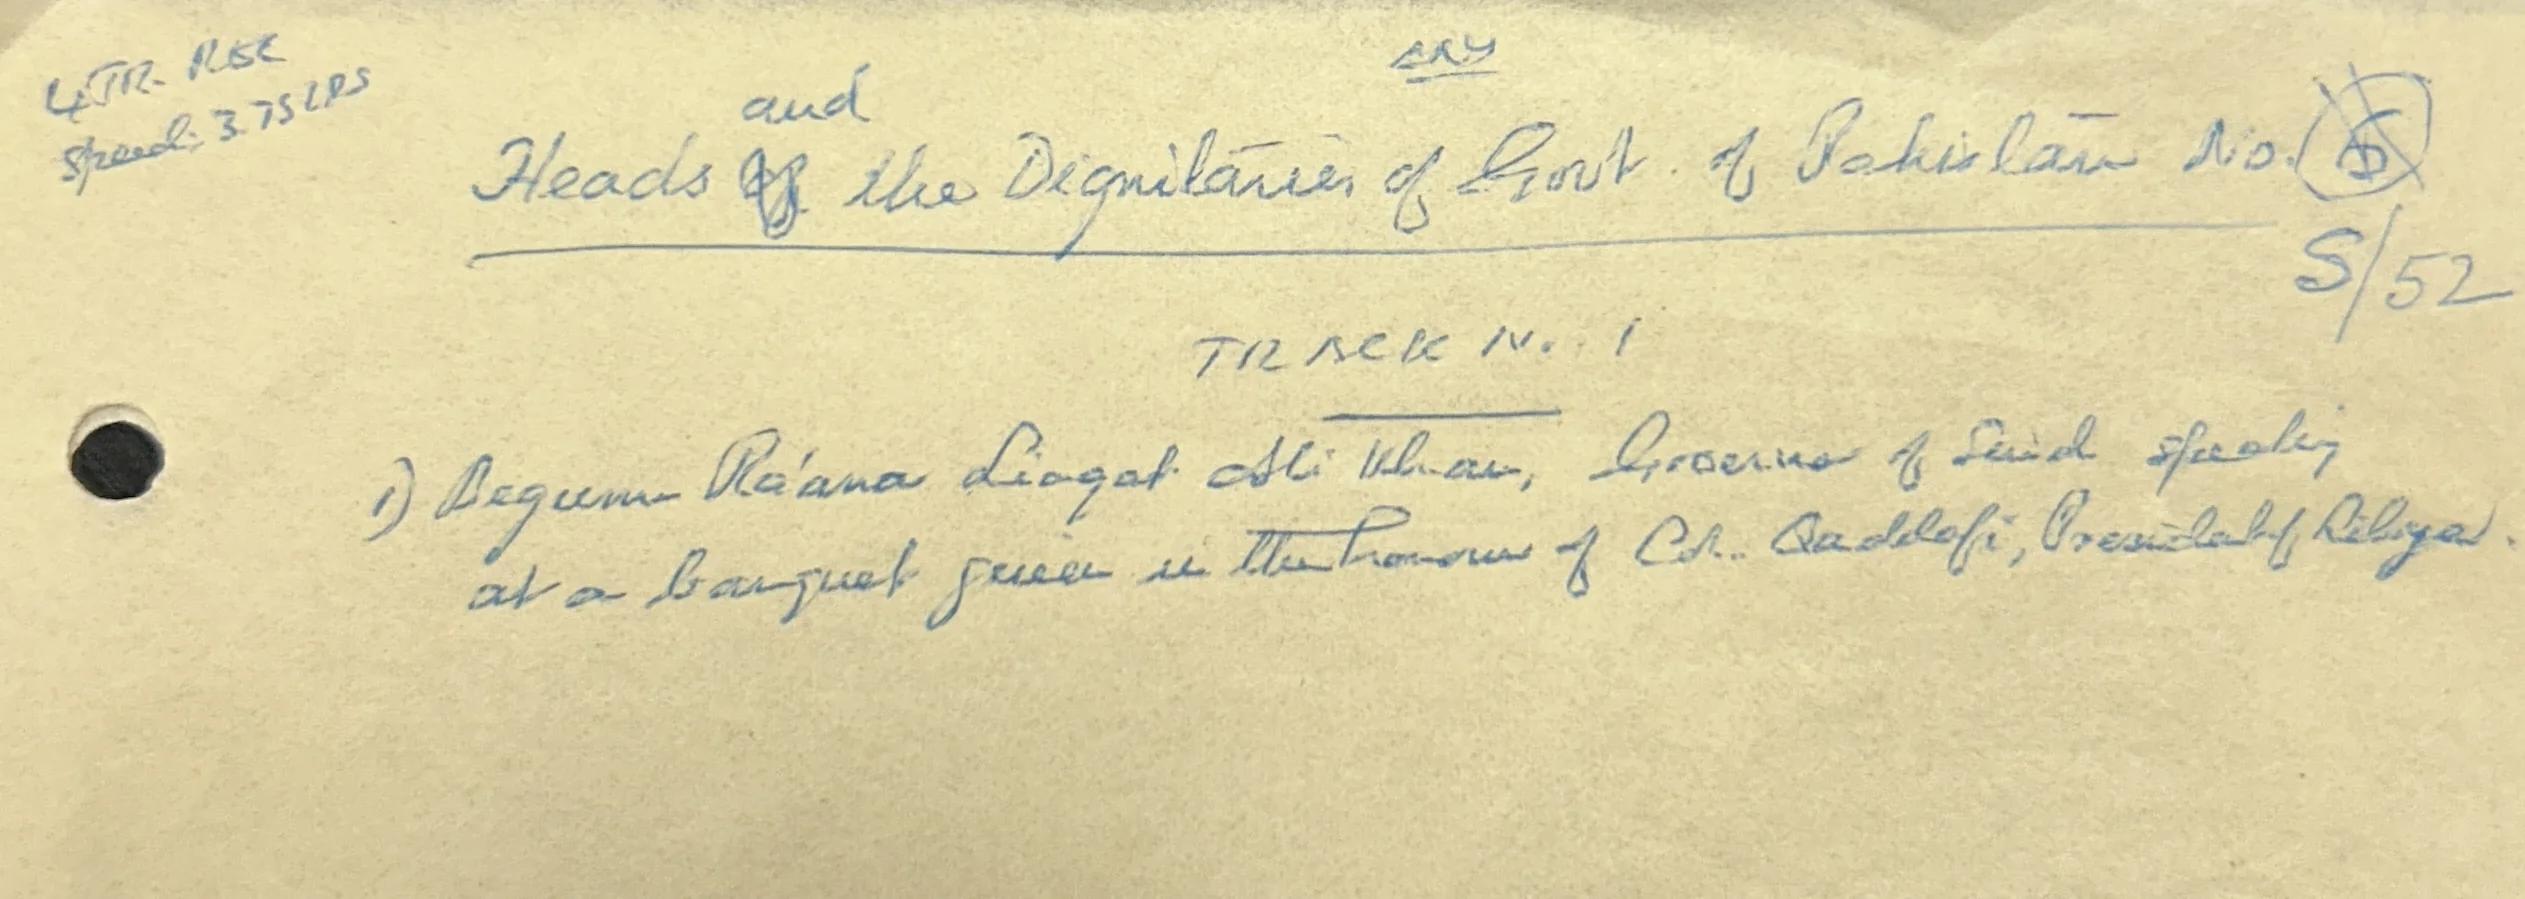 4 TR. REC
Speed: 3.75 IPS
and
Heads the Dignitaries of Govt. of Pakistan No.
S/52
TRACK N. 1
1) Begum Ra'ana Liaqat Ali Khan, Governor of Sind speaking
at a banquet given in the honour of Col. Qaddafi, President of Libya.